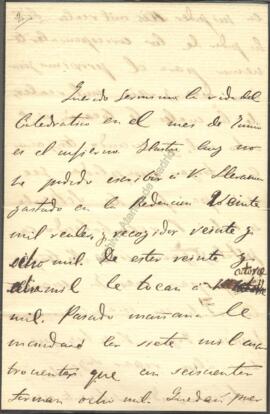 Querido Jeronimo la vida del
Catedratico en el mes de Junio
es el infierno. Hasta hoy no
he podido escribir á V. Llevamos
gastado en la Redencion veinte
mil reales y recogidos veinte y
ocho mil. De estos veinte y
ocho mil le tocan á V. catorce
mil. Pasado mañana le
mandaré los siete mil cua
trocientos que con seiscientos
forman ocho mil. Quedan por